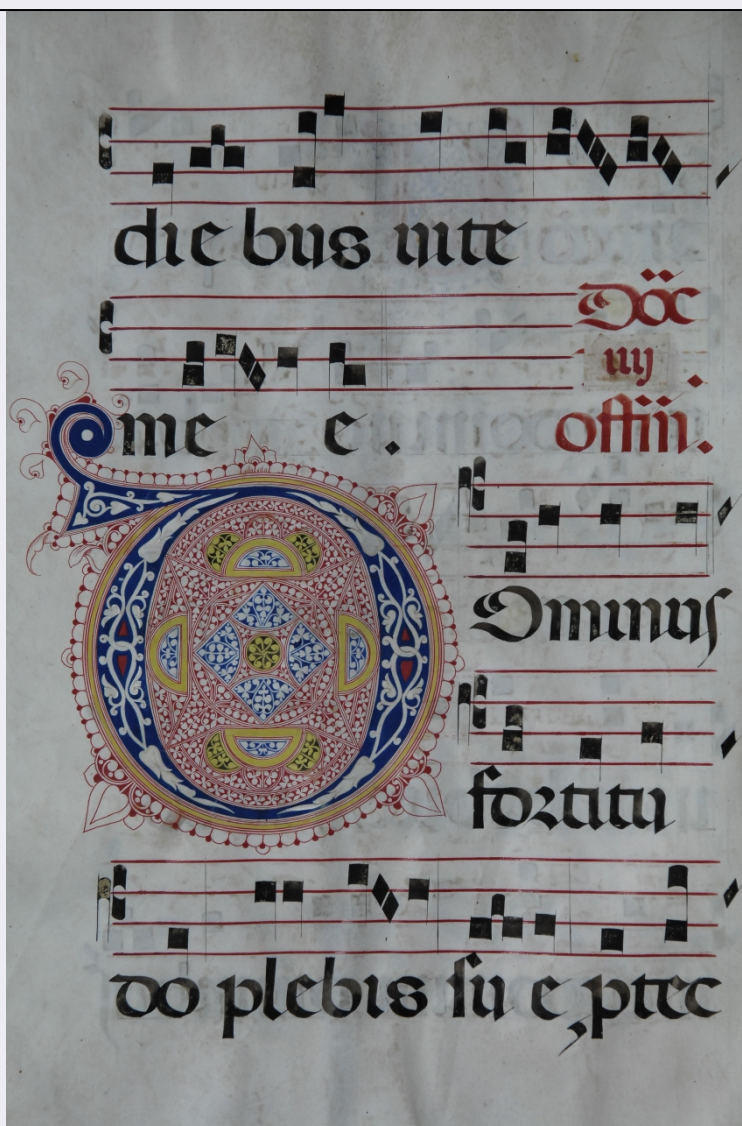 die bus uite
Döc
iiij
me e .
offiii.
Ominus
fortitu
do plebis su e ptec